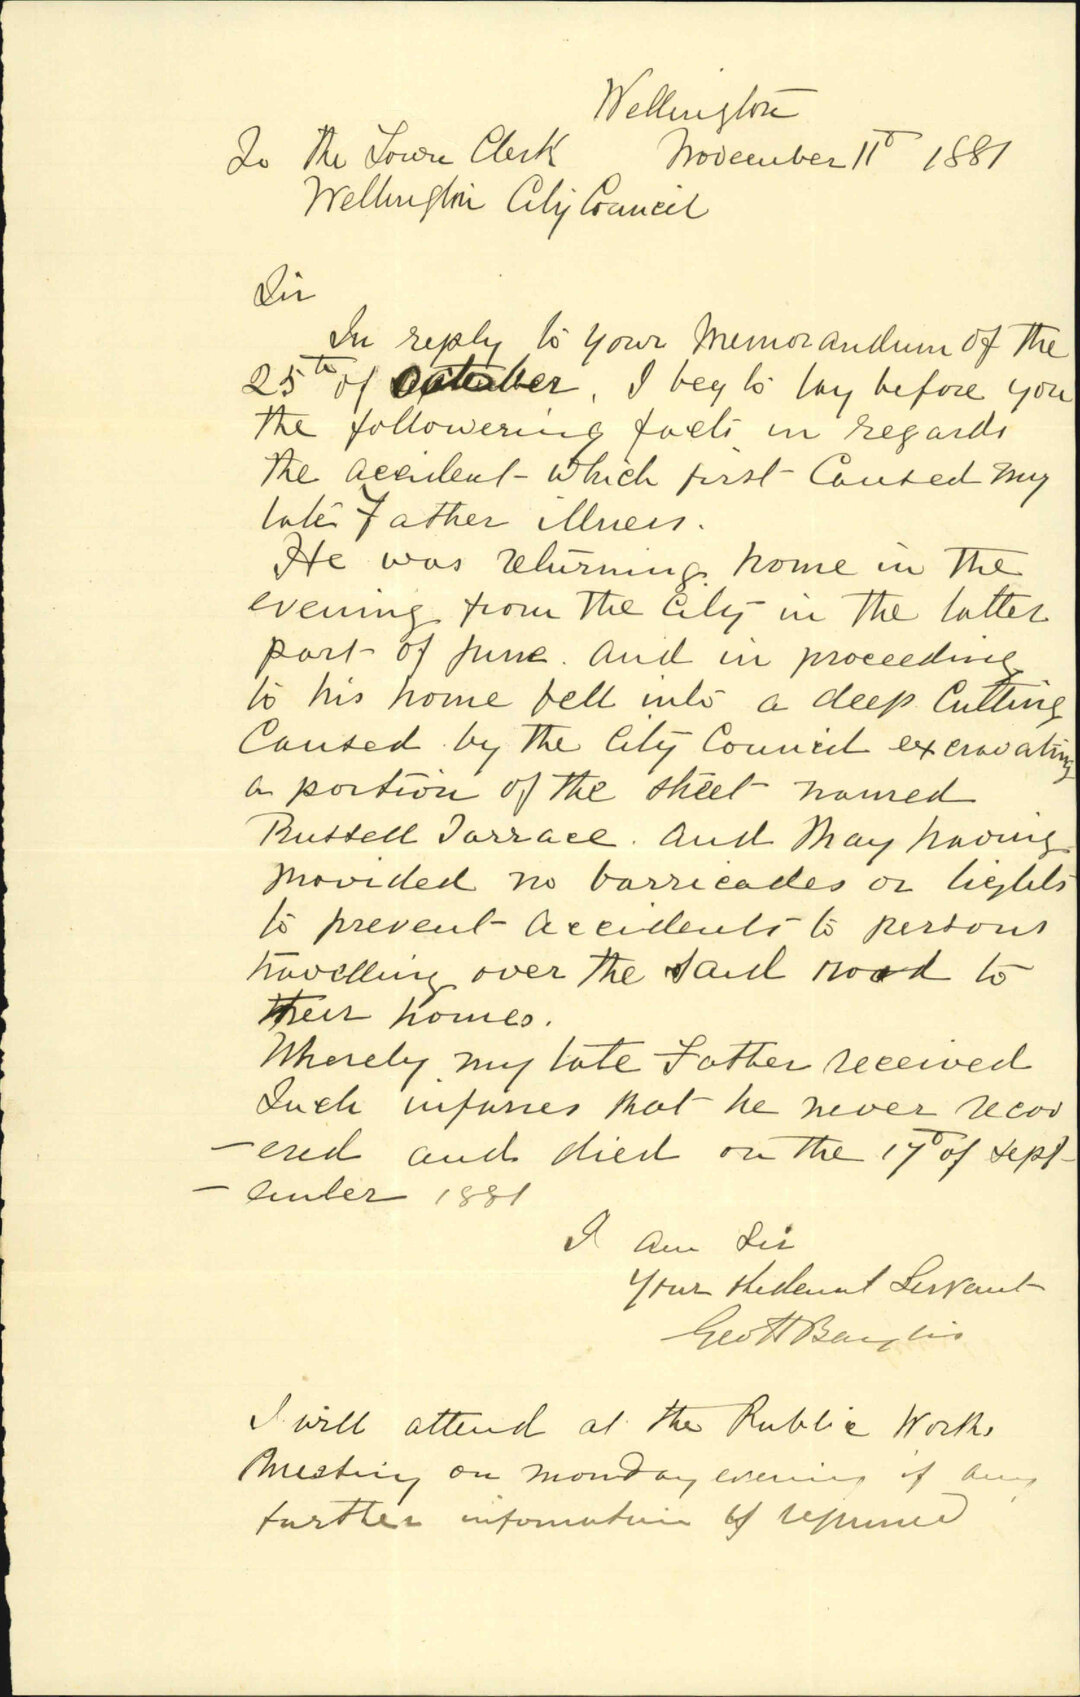 Wellington
To the Town Clerk November 11th 1881
Wellington City Council
Sir
In reply to your Memorandum of the
25th of October, I beg to lay before you
the followering facts in regards
the accident which first Caused my
late Father illness.
He was returning home in the
evening from the City in the latter
part of June. and in proceeding
to his home fell into a deep Cutting
Caused by the City Council excavating
a portion of the street named
Russell Tarrace. and they having
provided no barricades or lights
to prevent accidents to persons
travelling over the said road to
their homes.
Whereby my late Father received
Such injuries that he never recov
-ered and died on the 17th of Sept-
-ember 1881
I am Sir
Your obedient Servant
Geo H
I will attend at the Public Works
Meeting on monday evening if any
further information is required